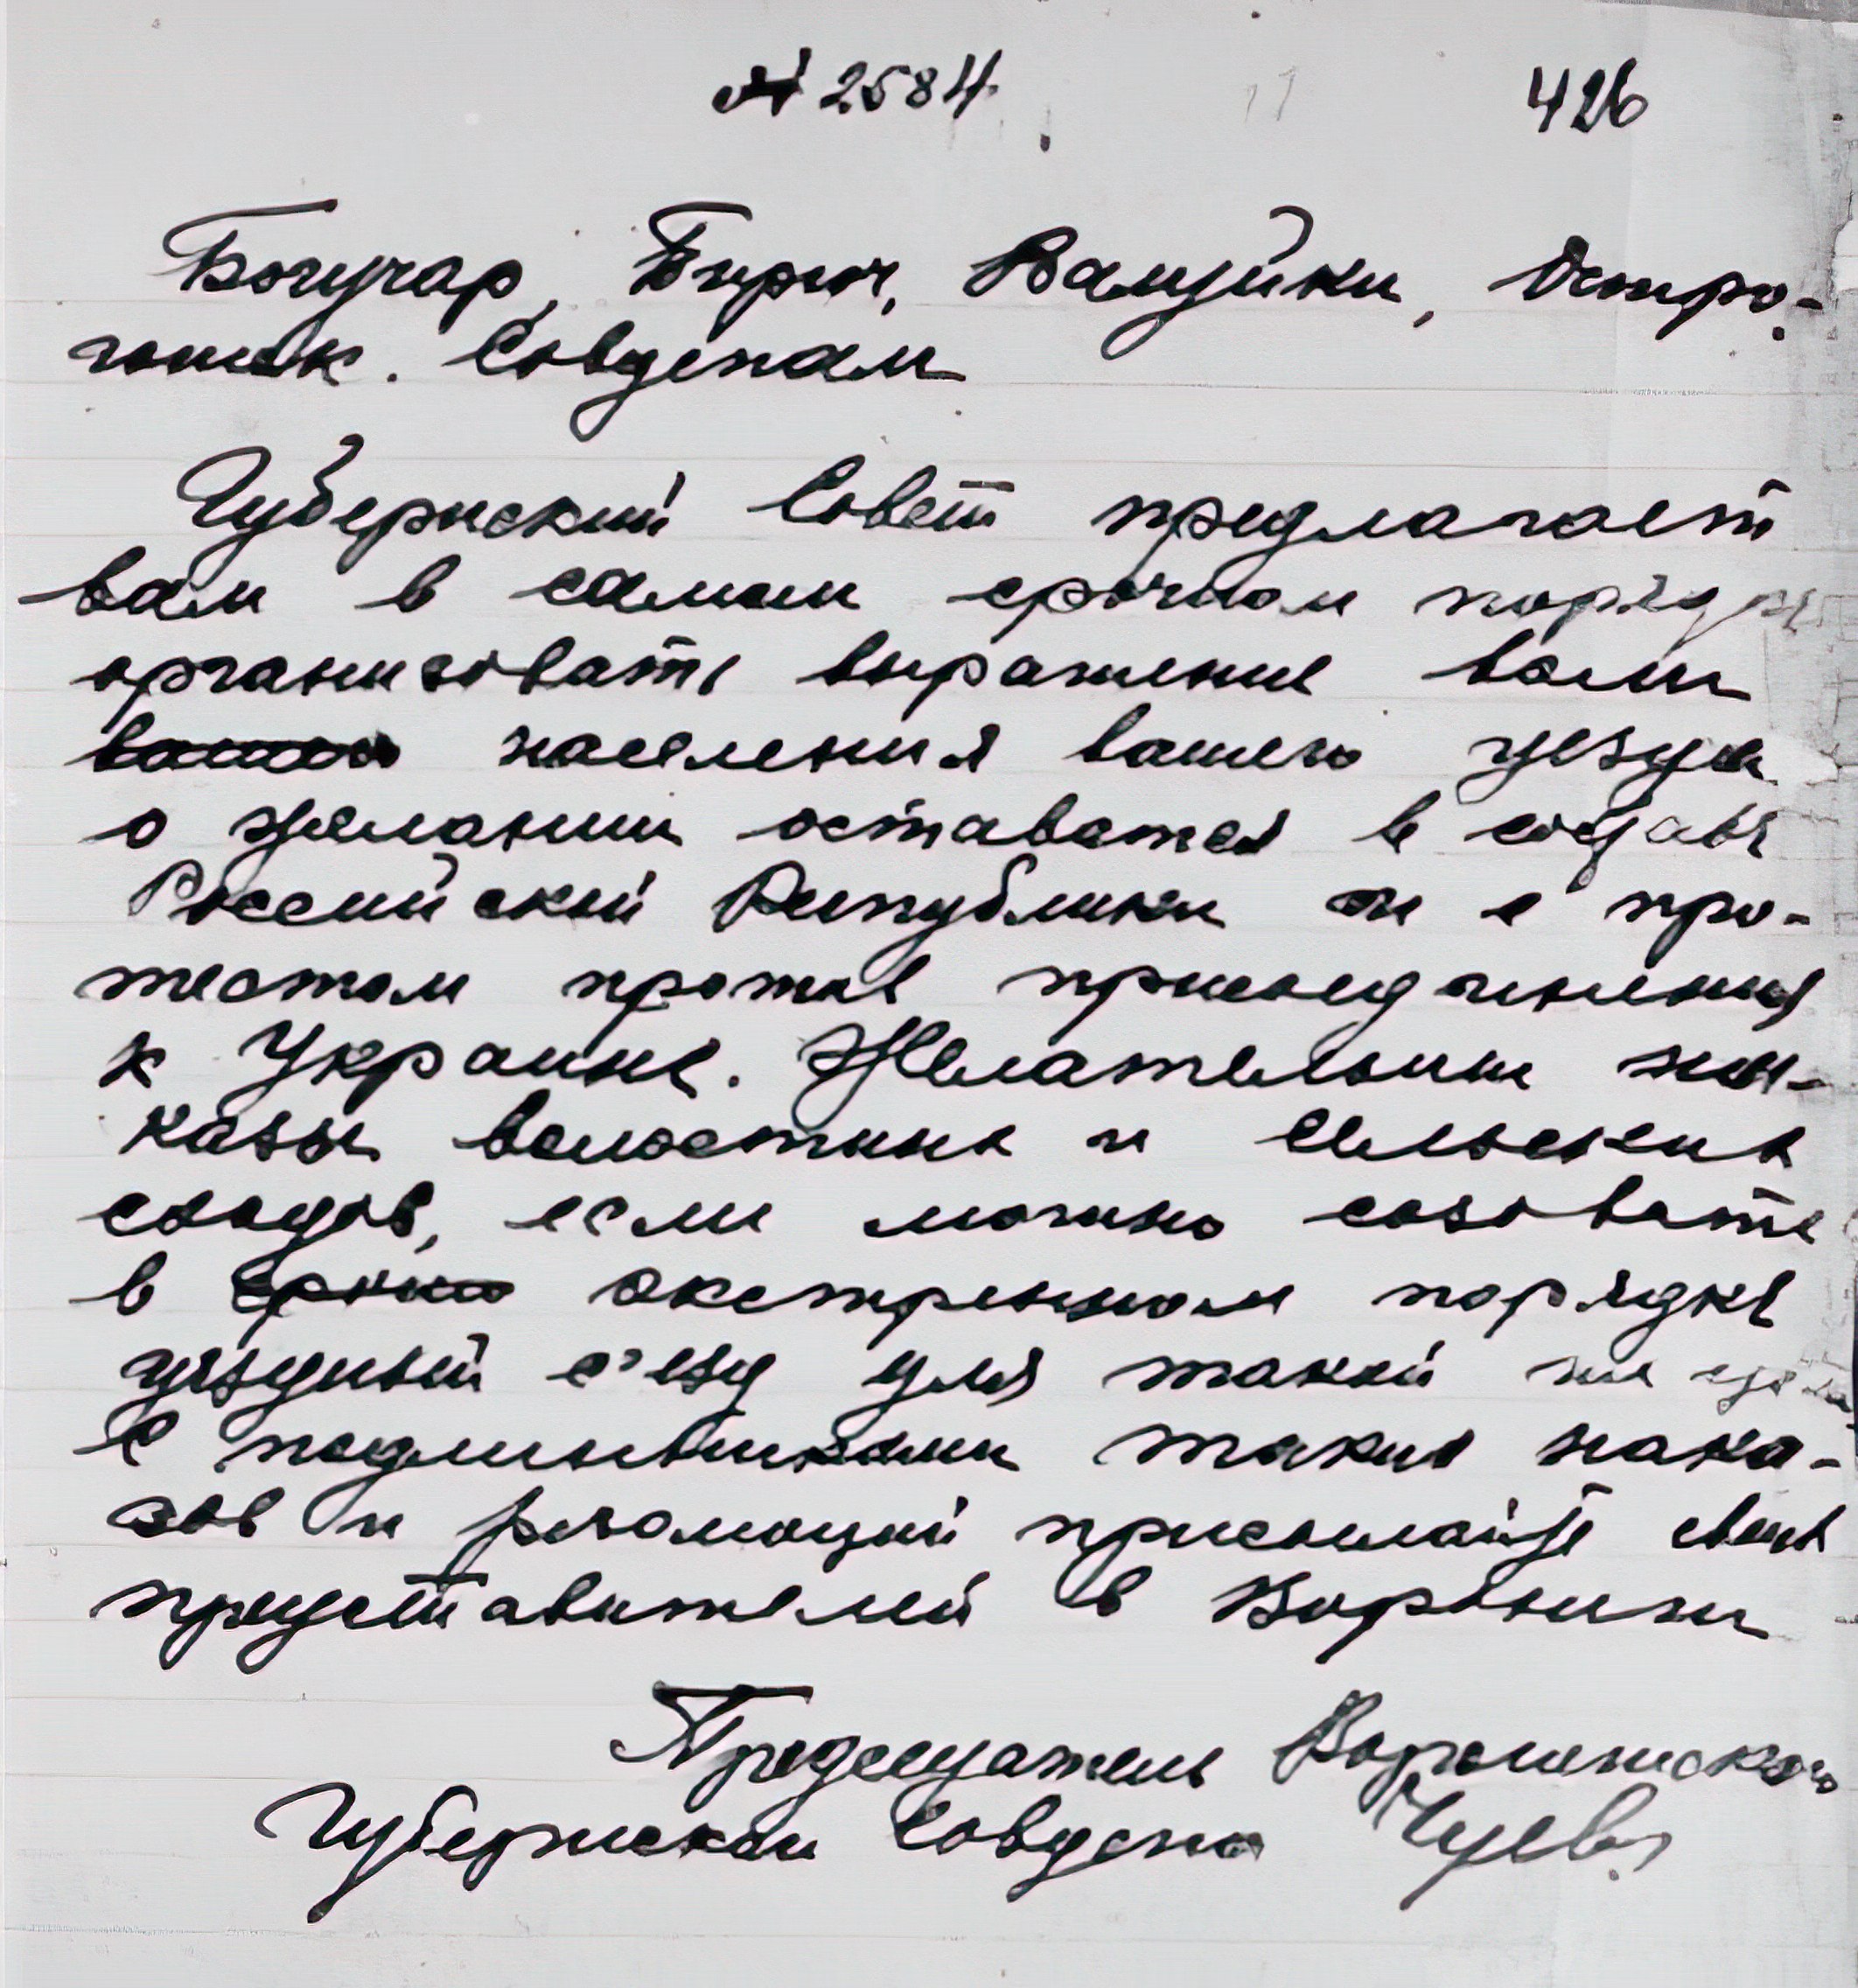 № 2584
426
Богучар, Бирюч, Валуйки, Остро-
гожск. Совдепам
Губернский Совет предлагает
вам в самом срочном порядке
организовать выражение воли
населения вашего уезда
о желании оставаться в составе
Российской Республики и с про-
тестом против присоединения
к Украине. Желательны на-
казы волостных и сельских
сходов, если можно созовите
в экстренном порядке
уездный с'езд для такой же
С подлинниками таких нака-
зов и резолюций присылайте своих
представителей в Воронеж
Председатель Воронежского
Губернскаго Совдепа Чуев